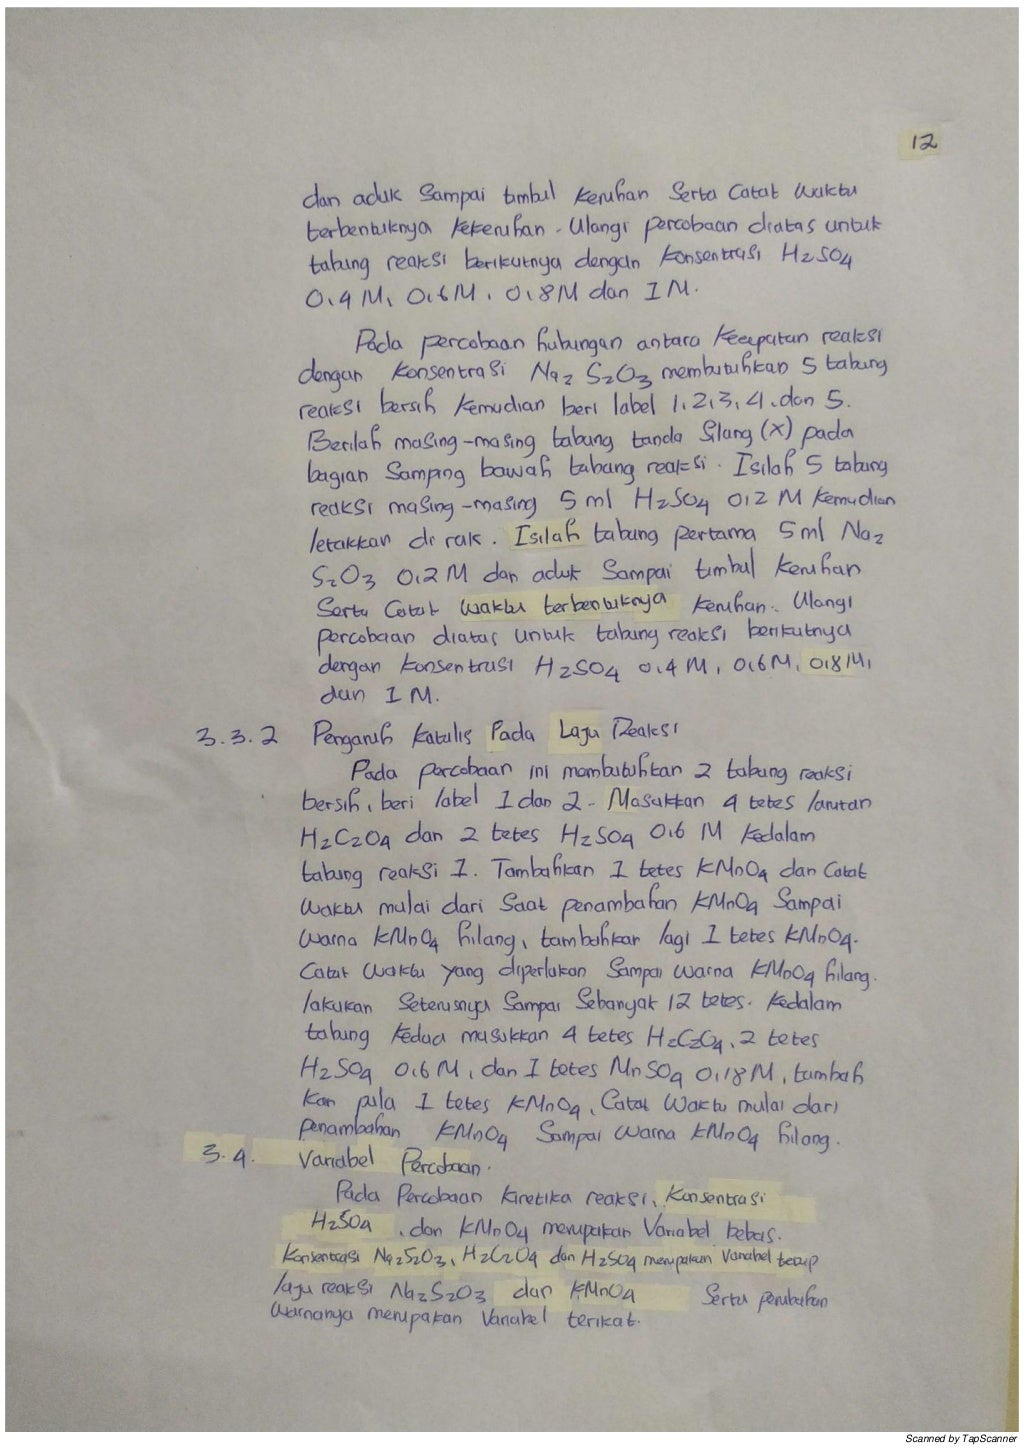 12
dan aduk Sampai timbul keruhan Serta Catat Waktu
terbentuknya kekeruhan. Ulangi percobaan diatas untuk
tabung reaksi berikutnya dengan konsentrasi H₂SO₄
0,4 M, 0,6 M, 0,8 M dan 1 M.
Pada percobaan hubungan antara kecepatan reaksi
dengan konsentrasi Na₂ S₂O₃ membutuhkan 5 tabung
reaksi bersih kemudian beri label 1, 2, 3, 4, dan 5.
Berilah masing-masing tabung tanda Silang (x) pada
bagian Samping bawah tabung reaksi. Isilah 5 tabung
reaksi masing-masing 5 ml H₂SO₄ 0,2 M kemudian
letakkan di rak. Isilah tabung pertama 5 ml Na₂
S₂O₃ 0,2 M dan aduk Sampai timbul keruhan
Serta Catat Waktu terbentuknya keruhan. Ulangi
percobaan diatas untuk tabung reaksi berikutnya
dengan konsentrasi H₂SO₄ 0,4 M, 0,6 M, 0,8 M,
dan 1 M.
3.3.2 Pengaruh Katalis Pada Laju Reaksi
Pada percobaan ini membutuhkan 2 tabung reaksi
bersih, beri label 1 dan 2. Masukkan 4 tetes larutan
H₂C₂O₄ dan 2 tetes H₂SO₄ 0,6 M kedalam
tabung reaksi 1. Tambahkan 1 tetes KMnO₄ dan Catat
Waktu mulai dari Saat penambahan KMnO₄ Sampai
Warna KMnO₄ hilang, tambahkan lagi 1 tetes KMnO₄.
Catat Waktu yang diperlukan Sampai Warna KMnO₄ hilang.
lakukan Seterusnya Sampai Sebanyak 12 tetes. Kedalam
tabung kedua masukkan 4 tetes H₂C₂O₄, 2 tetes
H₂SO₄ 0,6 M, dan 1 tetes MnSO₄ 0,18 M, tambah
kan pula 1 tetes KMnO₄, Catat Waktu mulai dari
penambahan KMnO₄ Sampai Warna KMnO₄ hilang.
3.4. Variabel Percobaan.
Pada Percobaan kinetika reaksi, Konsentrasi
H₂SO₄, dan KMnO₄ merupakan Variabel bebas.
Konsentrasi Na₂S₂O₃, H₂C₂O₄ dan H₂SO₄ merupakan Variabel tetap
laju reaksi Na₂S₂O₃ dan KMnO₄ Serta perubahan
Warnanya merupakan Variabel terikat.
Scanned by TapScanner